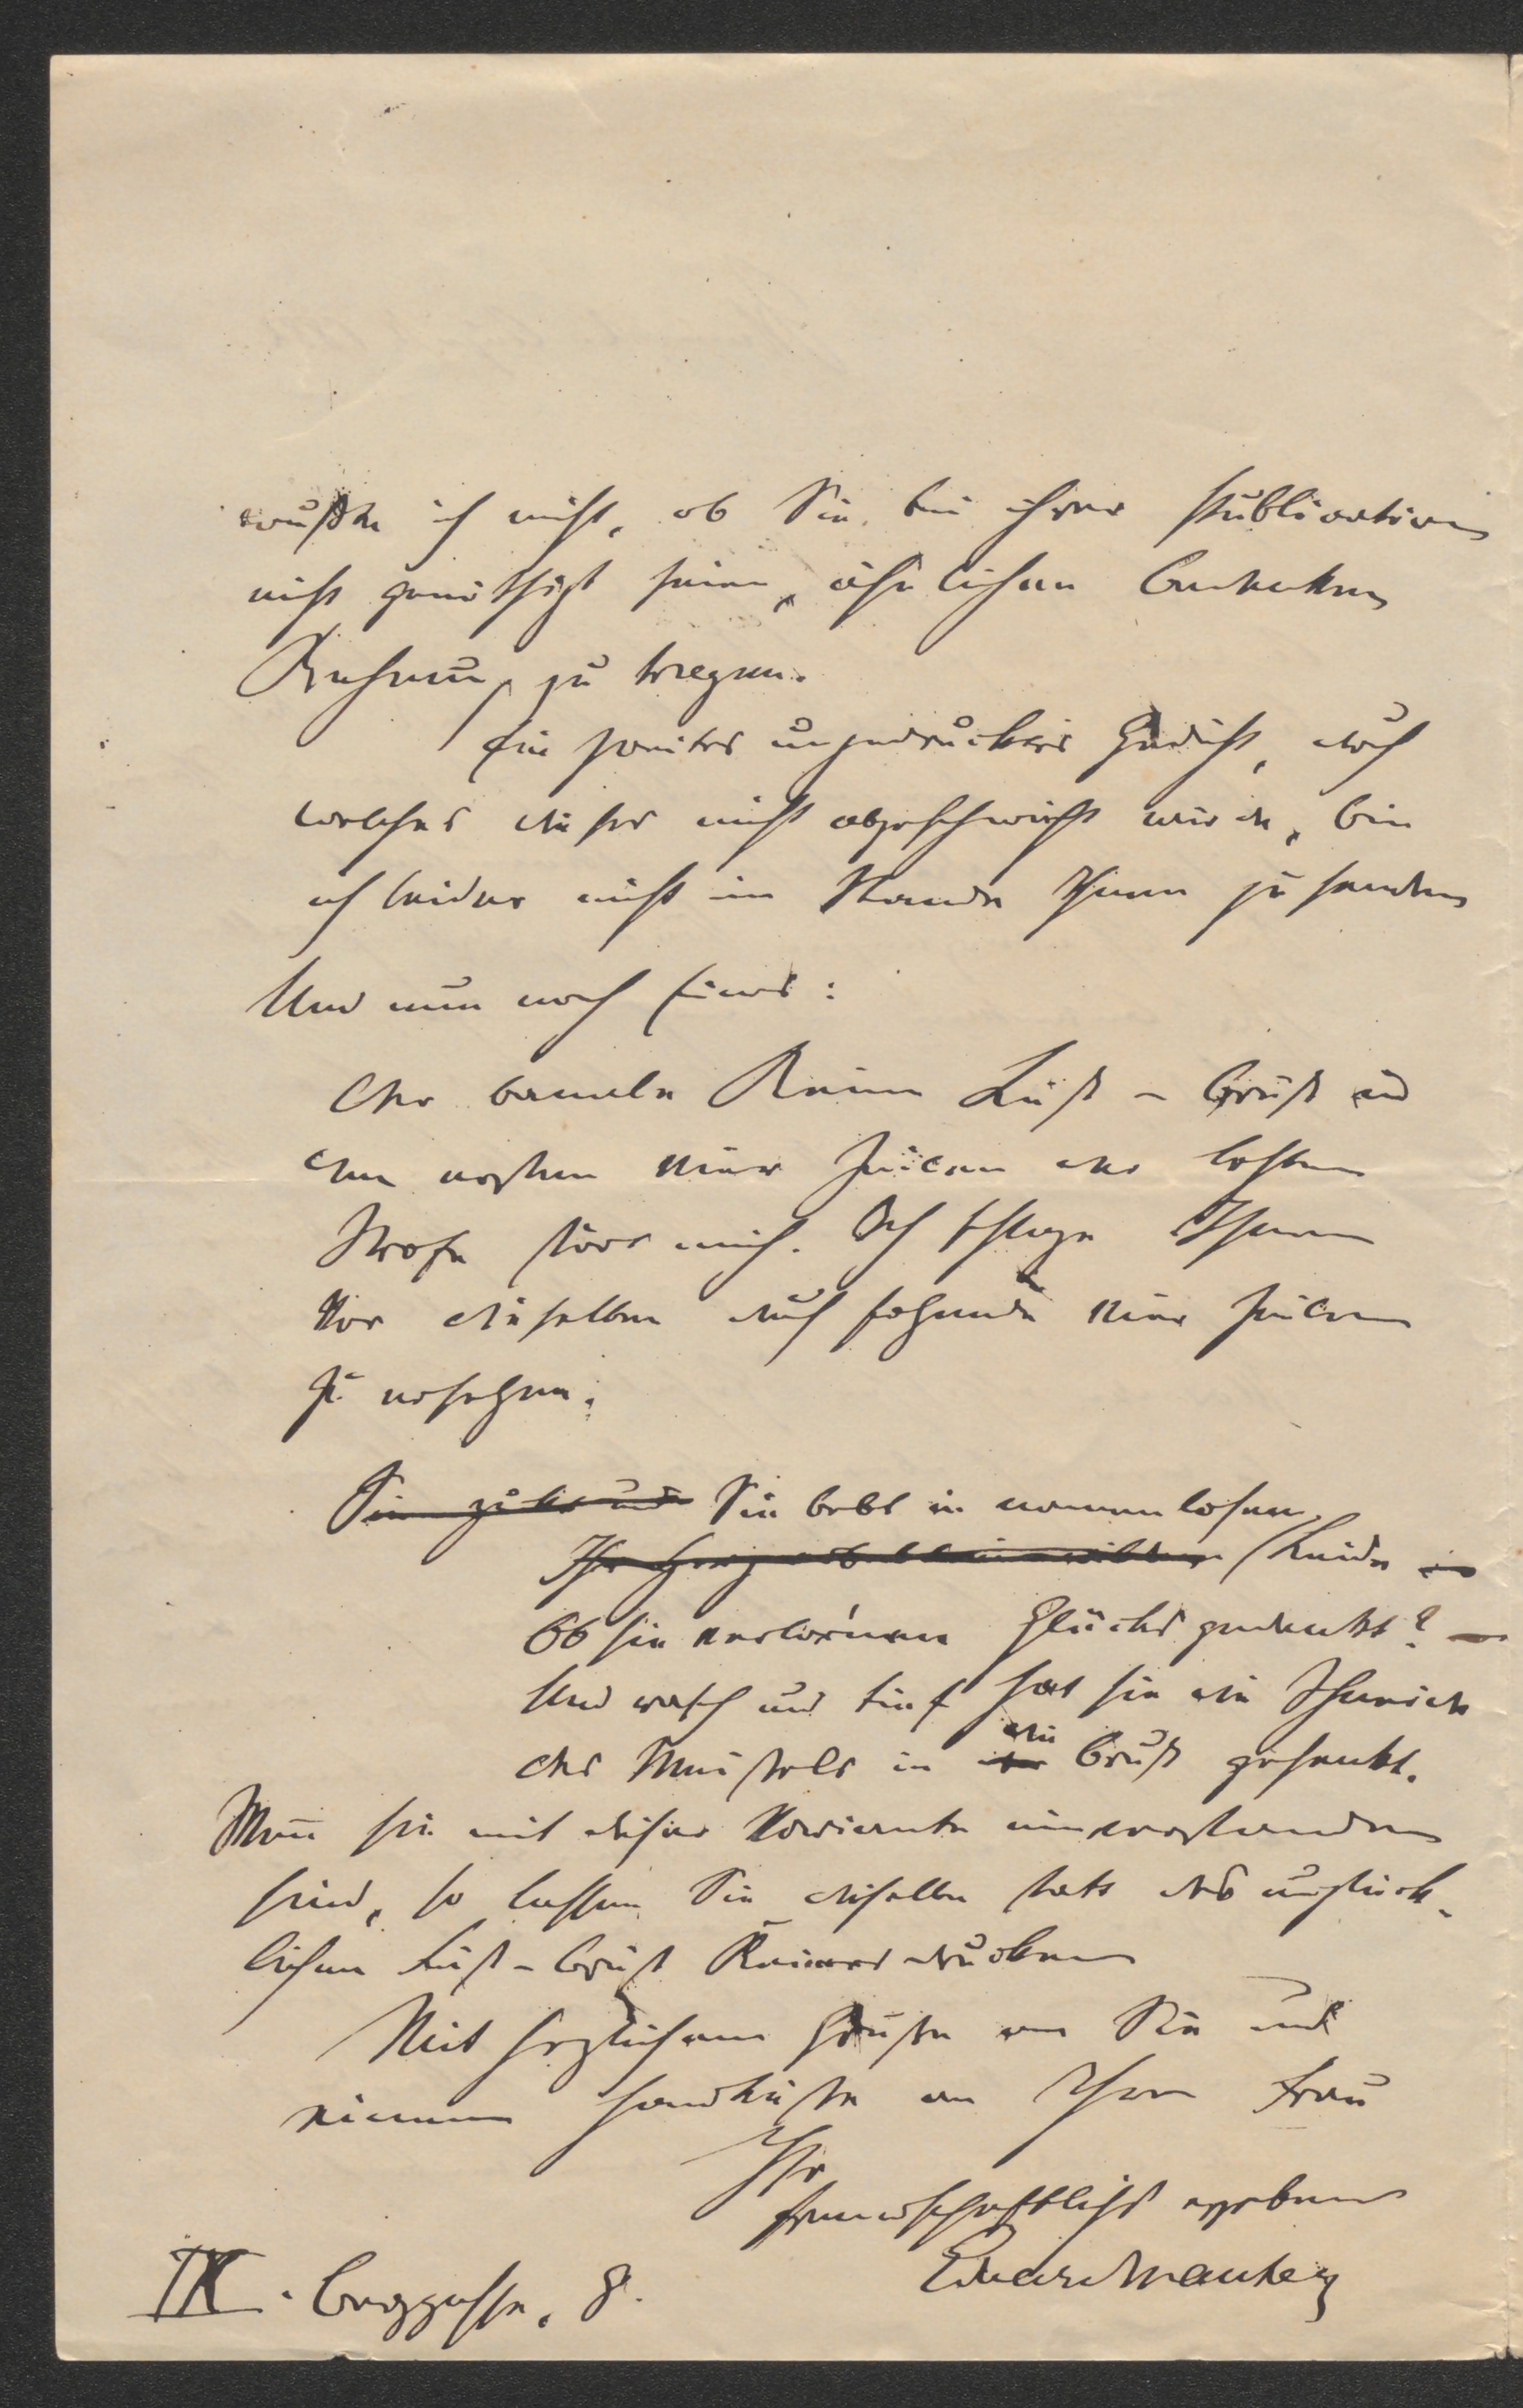 wußte ich nicht, ob Sie bei ihrer Publication
nicht genöthigt seien, ähnlichen Bedenken
Rechnung zu tragen.
Ein zweites ungedrucktes Gedicht, auch
welches dieser nicht abgeschwächt würde, bin
ich leider nicht im Stande Ihnen zu senden
Und nun noch Eines:
Der banale Reim Lust – Brust in
den ersten vier Zeilen der letzten
Strofe stört mich. Ich schlage Ihnen
vor dieselben durch folgende vier Zeilen
zu ersetzen:
Sie bebt in namenlosem
Leide
Ob sie verlor'nen Glücks gedenkt? –
Und rasch und tief hat sie die Schneide
des Meißels in die Brust gesenkt.
Wenn sie mit dieser Variante einverstanden
sind, so lassen Sie dieselbe statt des unglück-
lichen Lust-Brust Reimes drucken
Mit herzlichem Gruße an Sie und
einem Handkuße an Ihre Frau
Ihr
freundschaftlichst ergebener
Eduard Mautner
IX. Berggasse, 8.